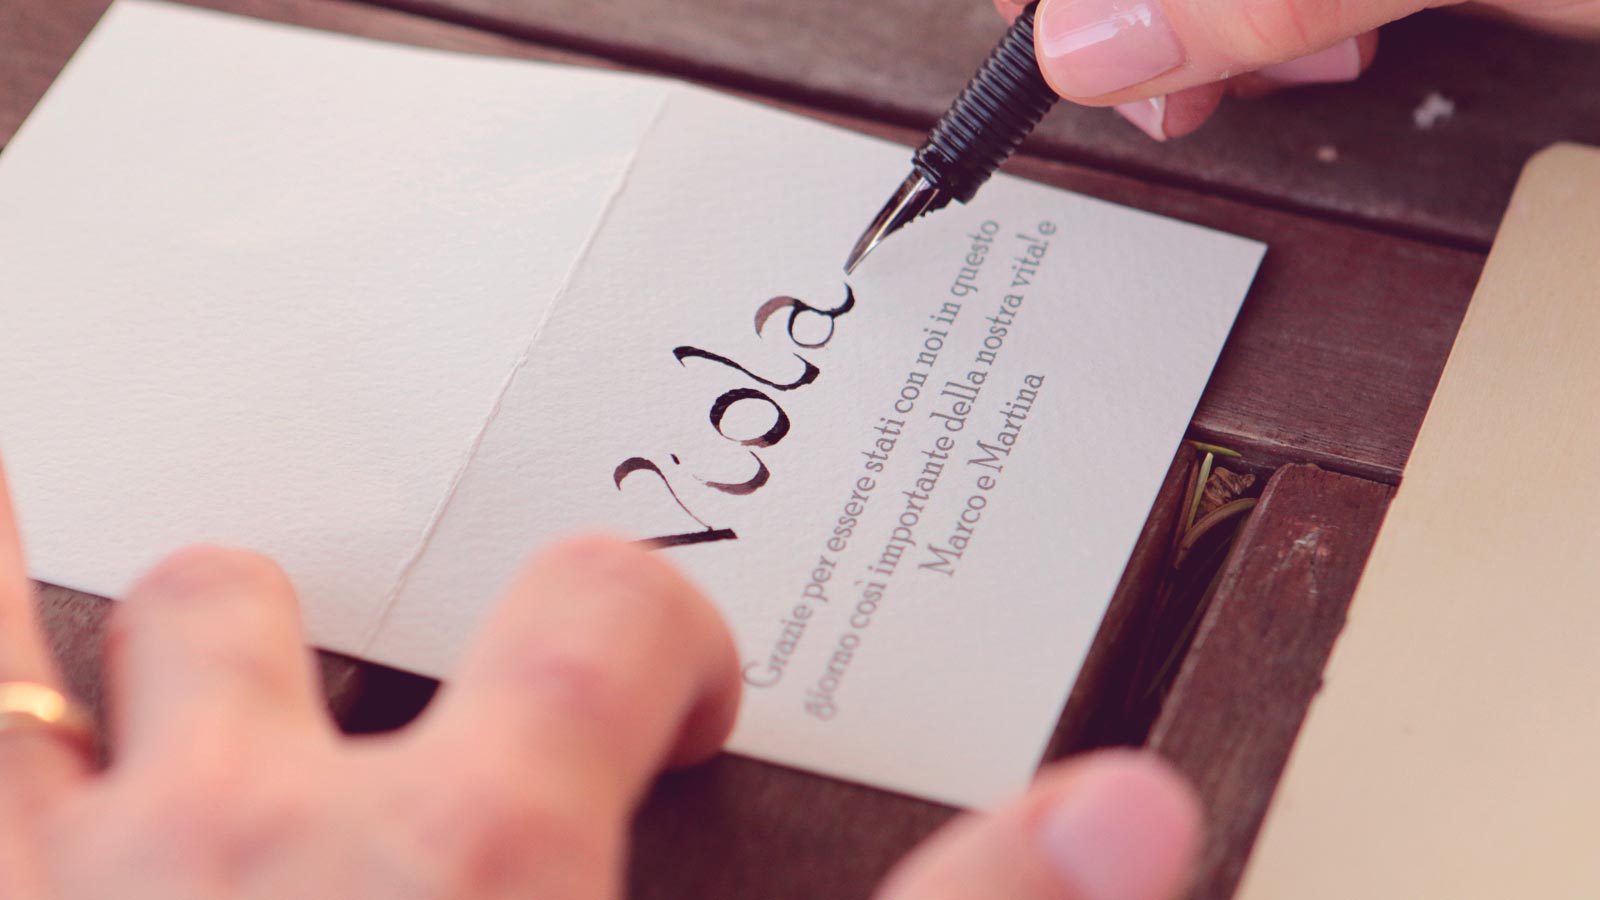 Viola
Grazie per essere stati con noi in questo
giorno così importante della nostra vita! e
Marco e Martina